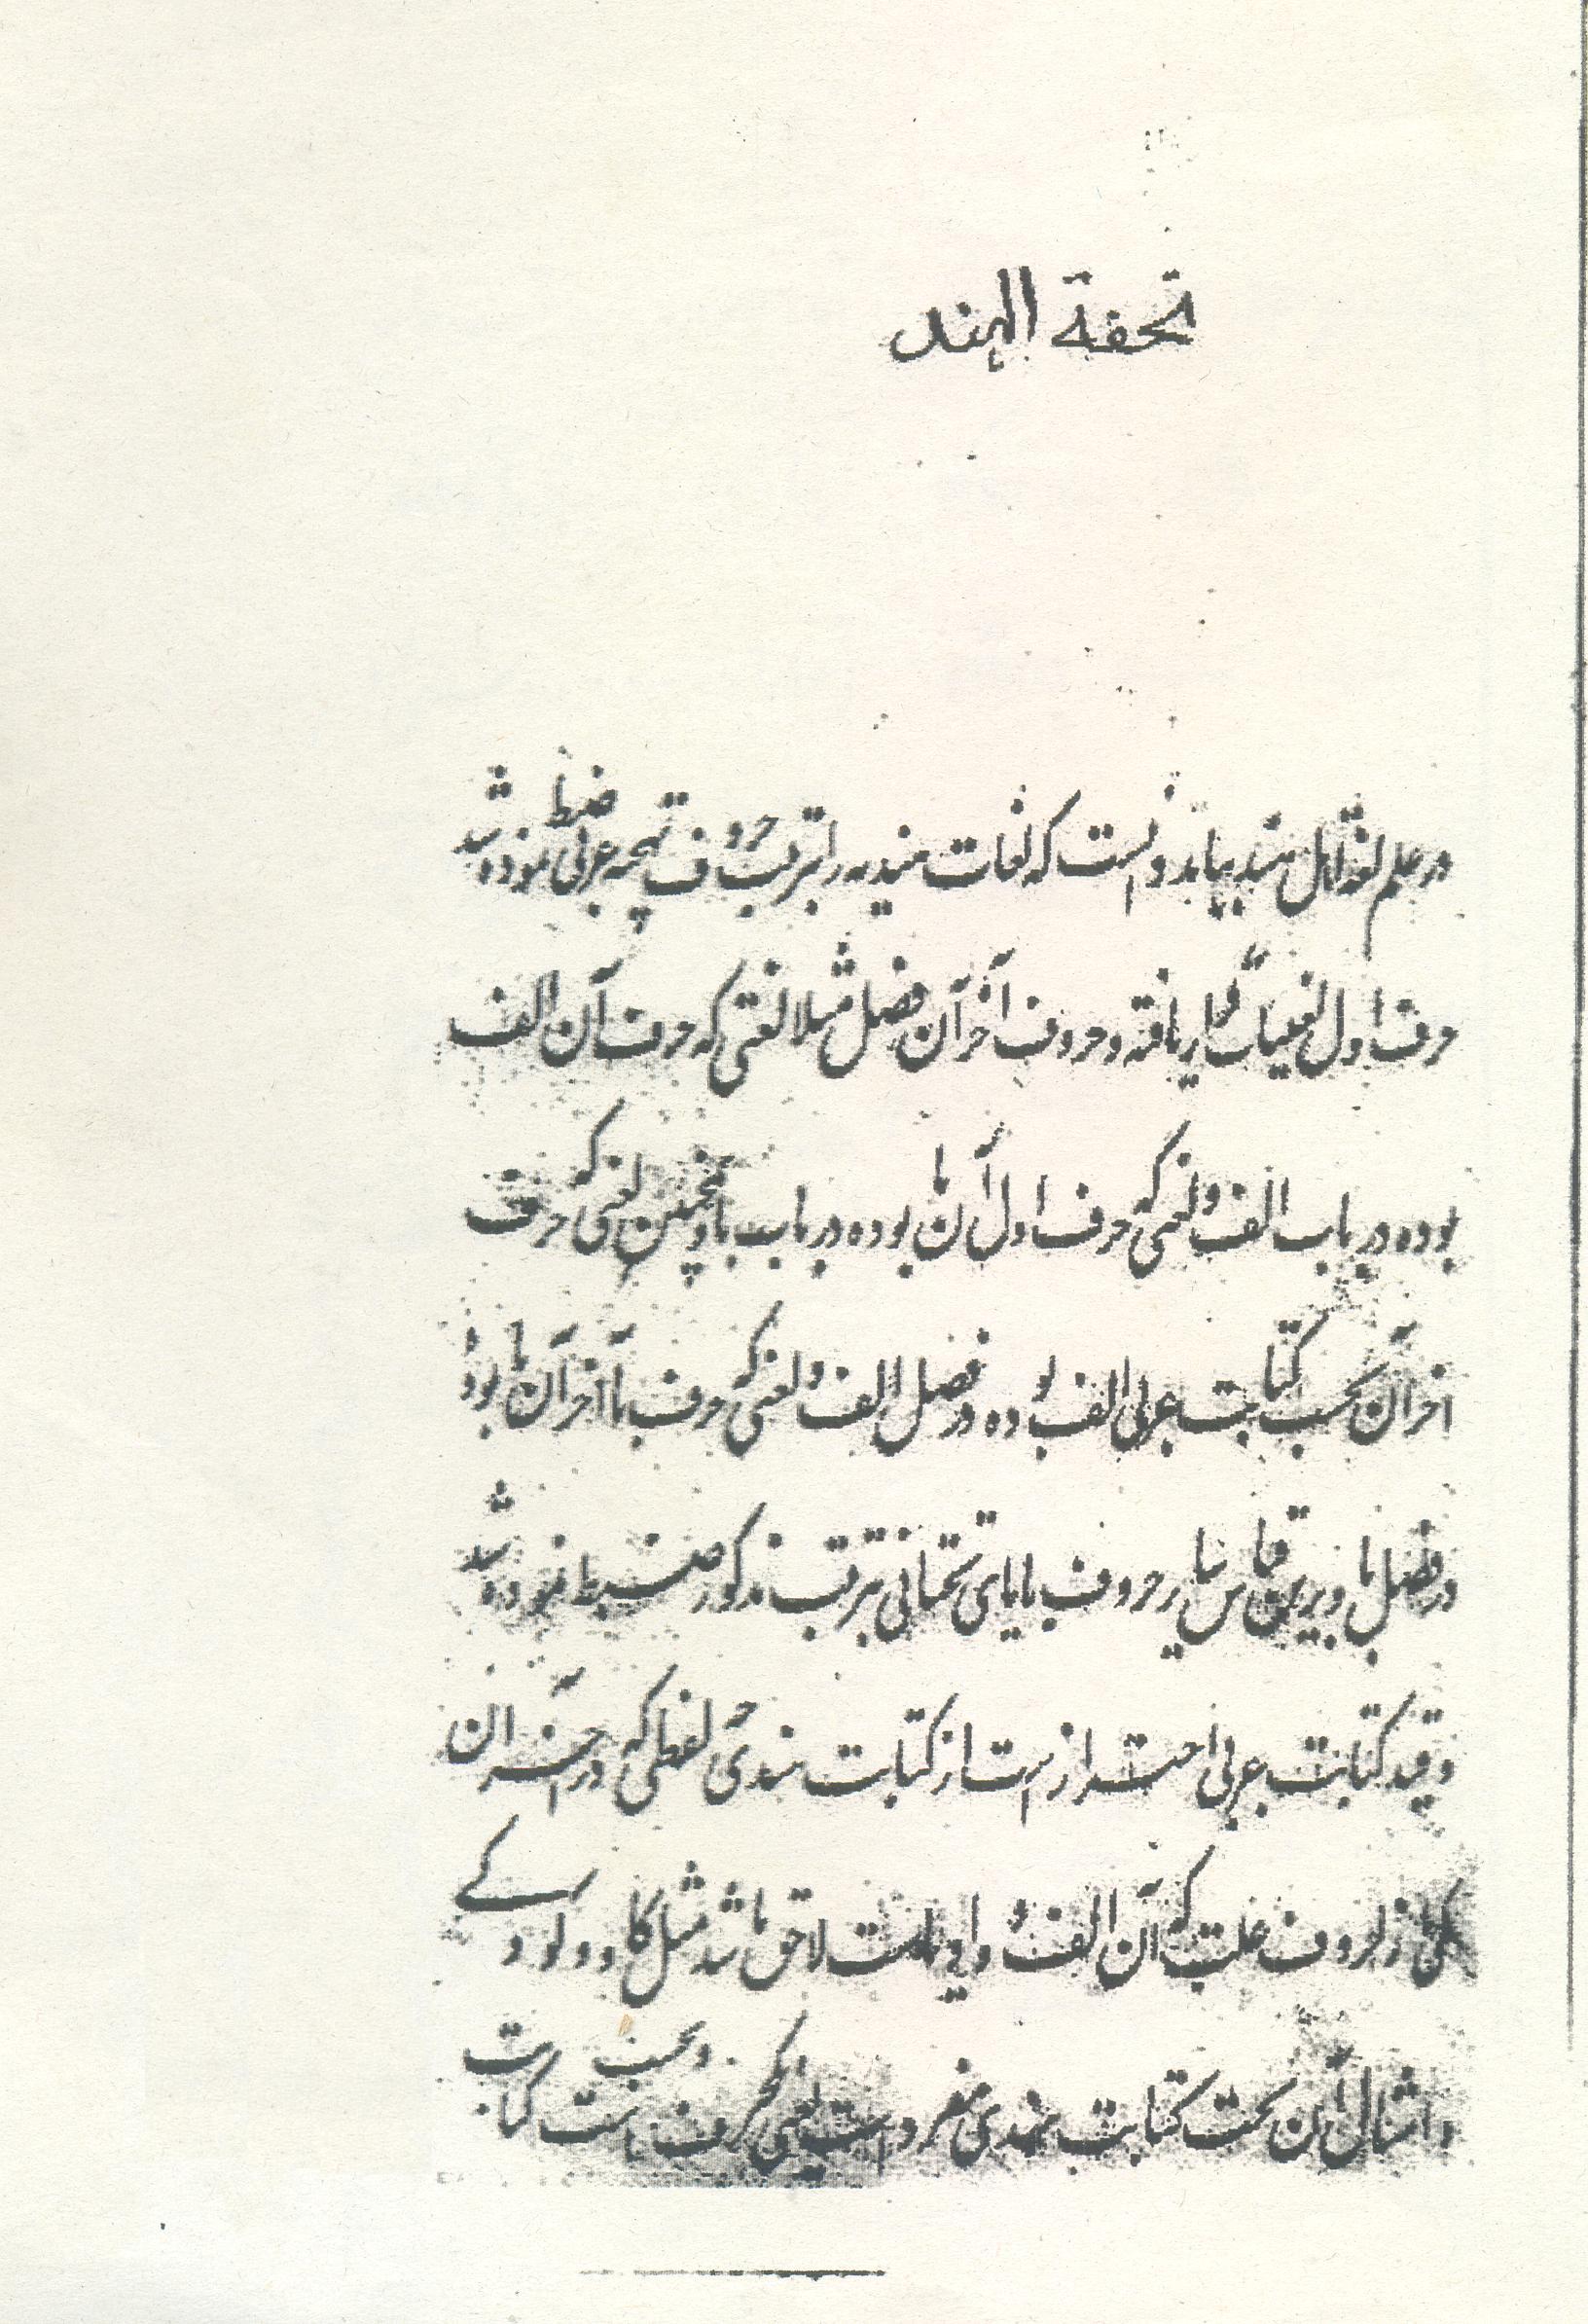 تحفة الهند
در علم لغة اهل هند بباید دانست که لغات هندیه را بترتیب حروف تهجه عربی ضبط نموده شد
حرف اول لغت باب قرار یافته و حروف آخر آن فصل مثلا لغتی که حرف آن الف
بوده در باب الف و لغتی که حرف اول آن با بوده در باب با و همچنین لغتی که حرف
اخر آن بحسب کتابت عربی الف بوده در فصل الف و لغتی که حرف با آخر آن با بود
در فصل با و برین قیاس سایر حروف با یای تحتانی بترتیب مذکور ضبط نموده شد
و قید کتابت عربی احتراز است از کتابت هندی چه لفظی که در آخر آن
یکی از حروف علت که آن الف و واو یاست لاحق باشد مثل کا و و لو و کے
و امثال آن بحسب کتابت هندی مفرد است یعنی یکحرف است و بحسب کتابت